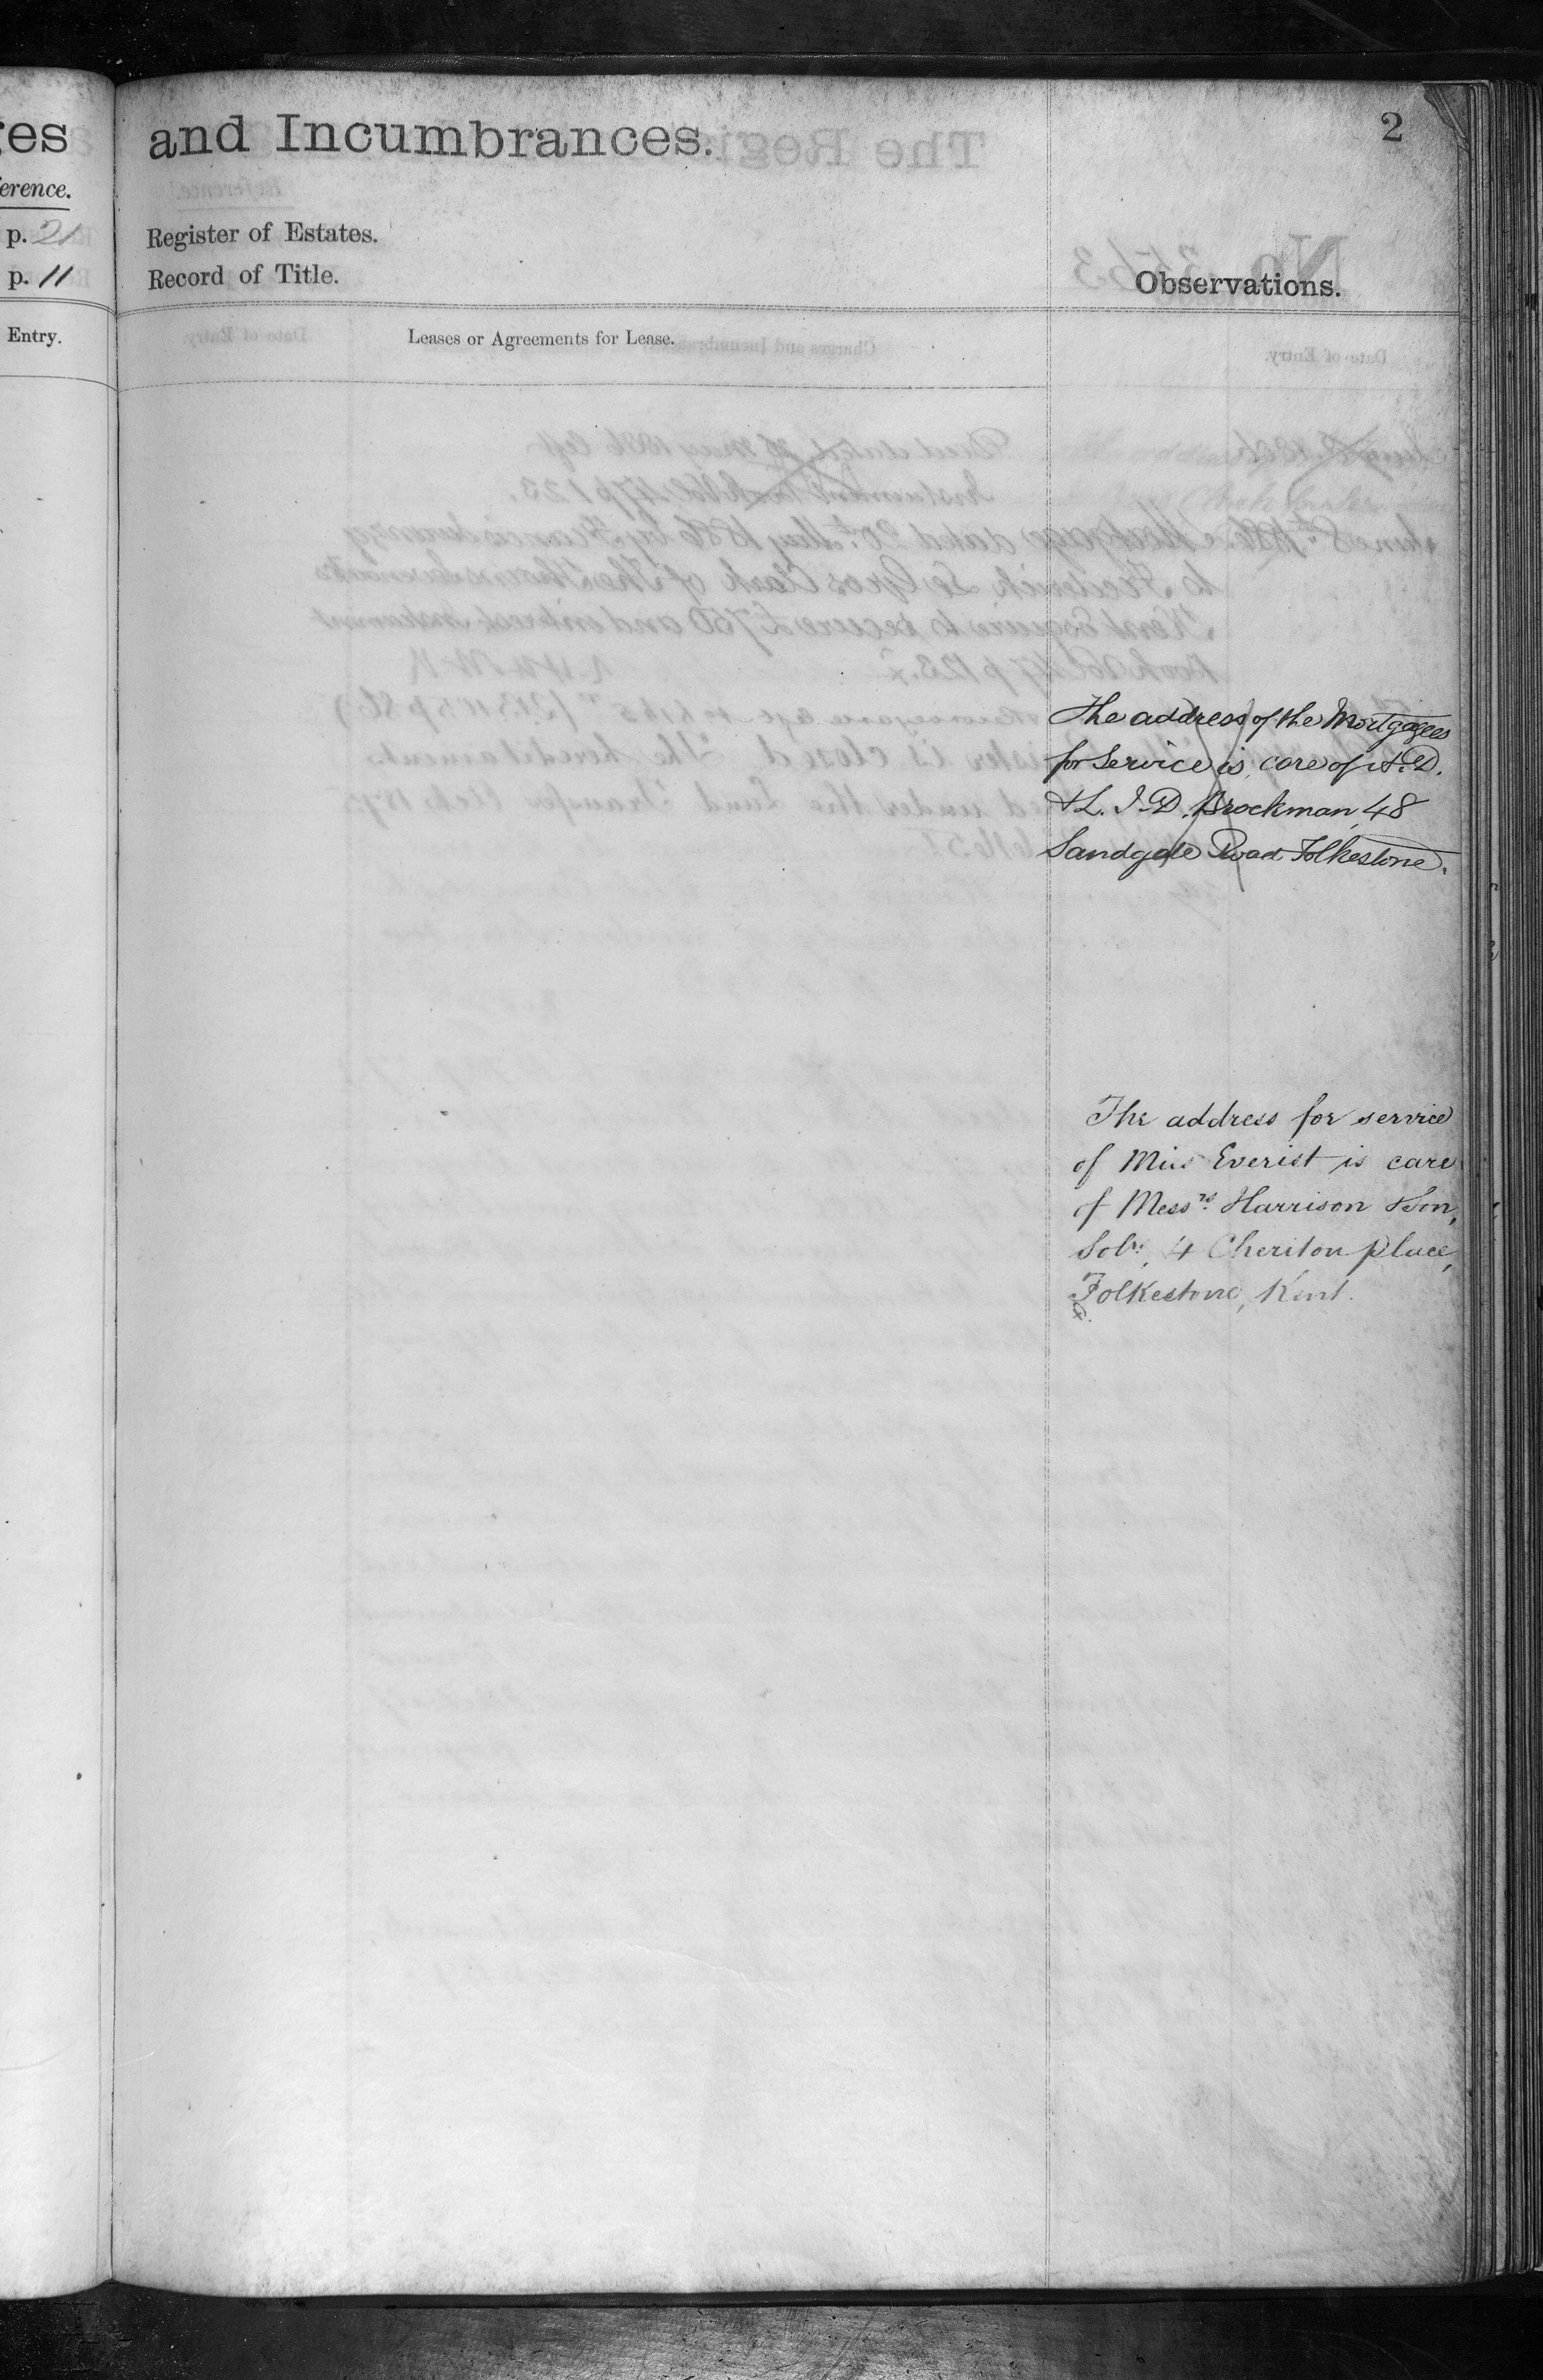 ges
erence.
p. 21
p. 11
Entry.
and Incumbrances.
2
Register of Estates.
Record of Title.
Observations.
Leases or Agreements for Lease.
The address of the Mortgagees
for Service is care of A. D.
& L. I. D. Brockman, 48
Sandgate Road Folkestone.
The address for service
of Miss Everist is care
of Messrs. Harrison & Son,
Solrs., 4 Cheriton place,
Folkestone, Kent.